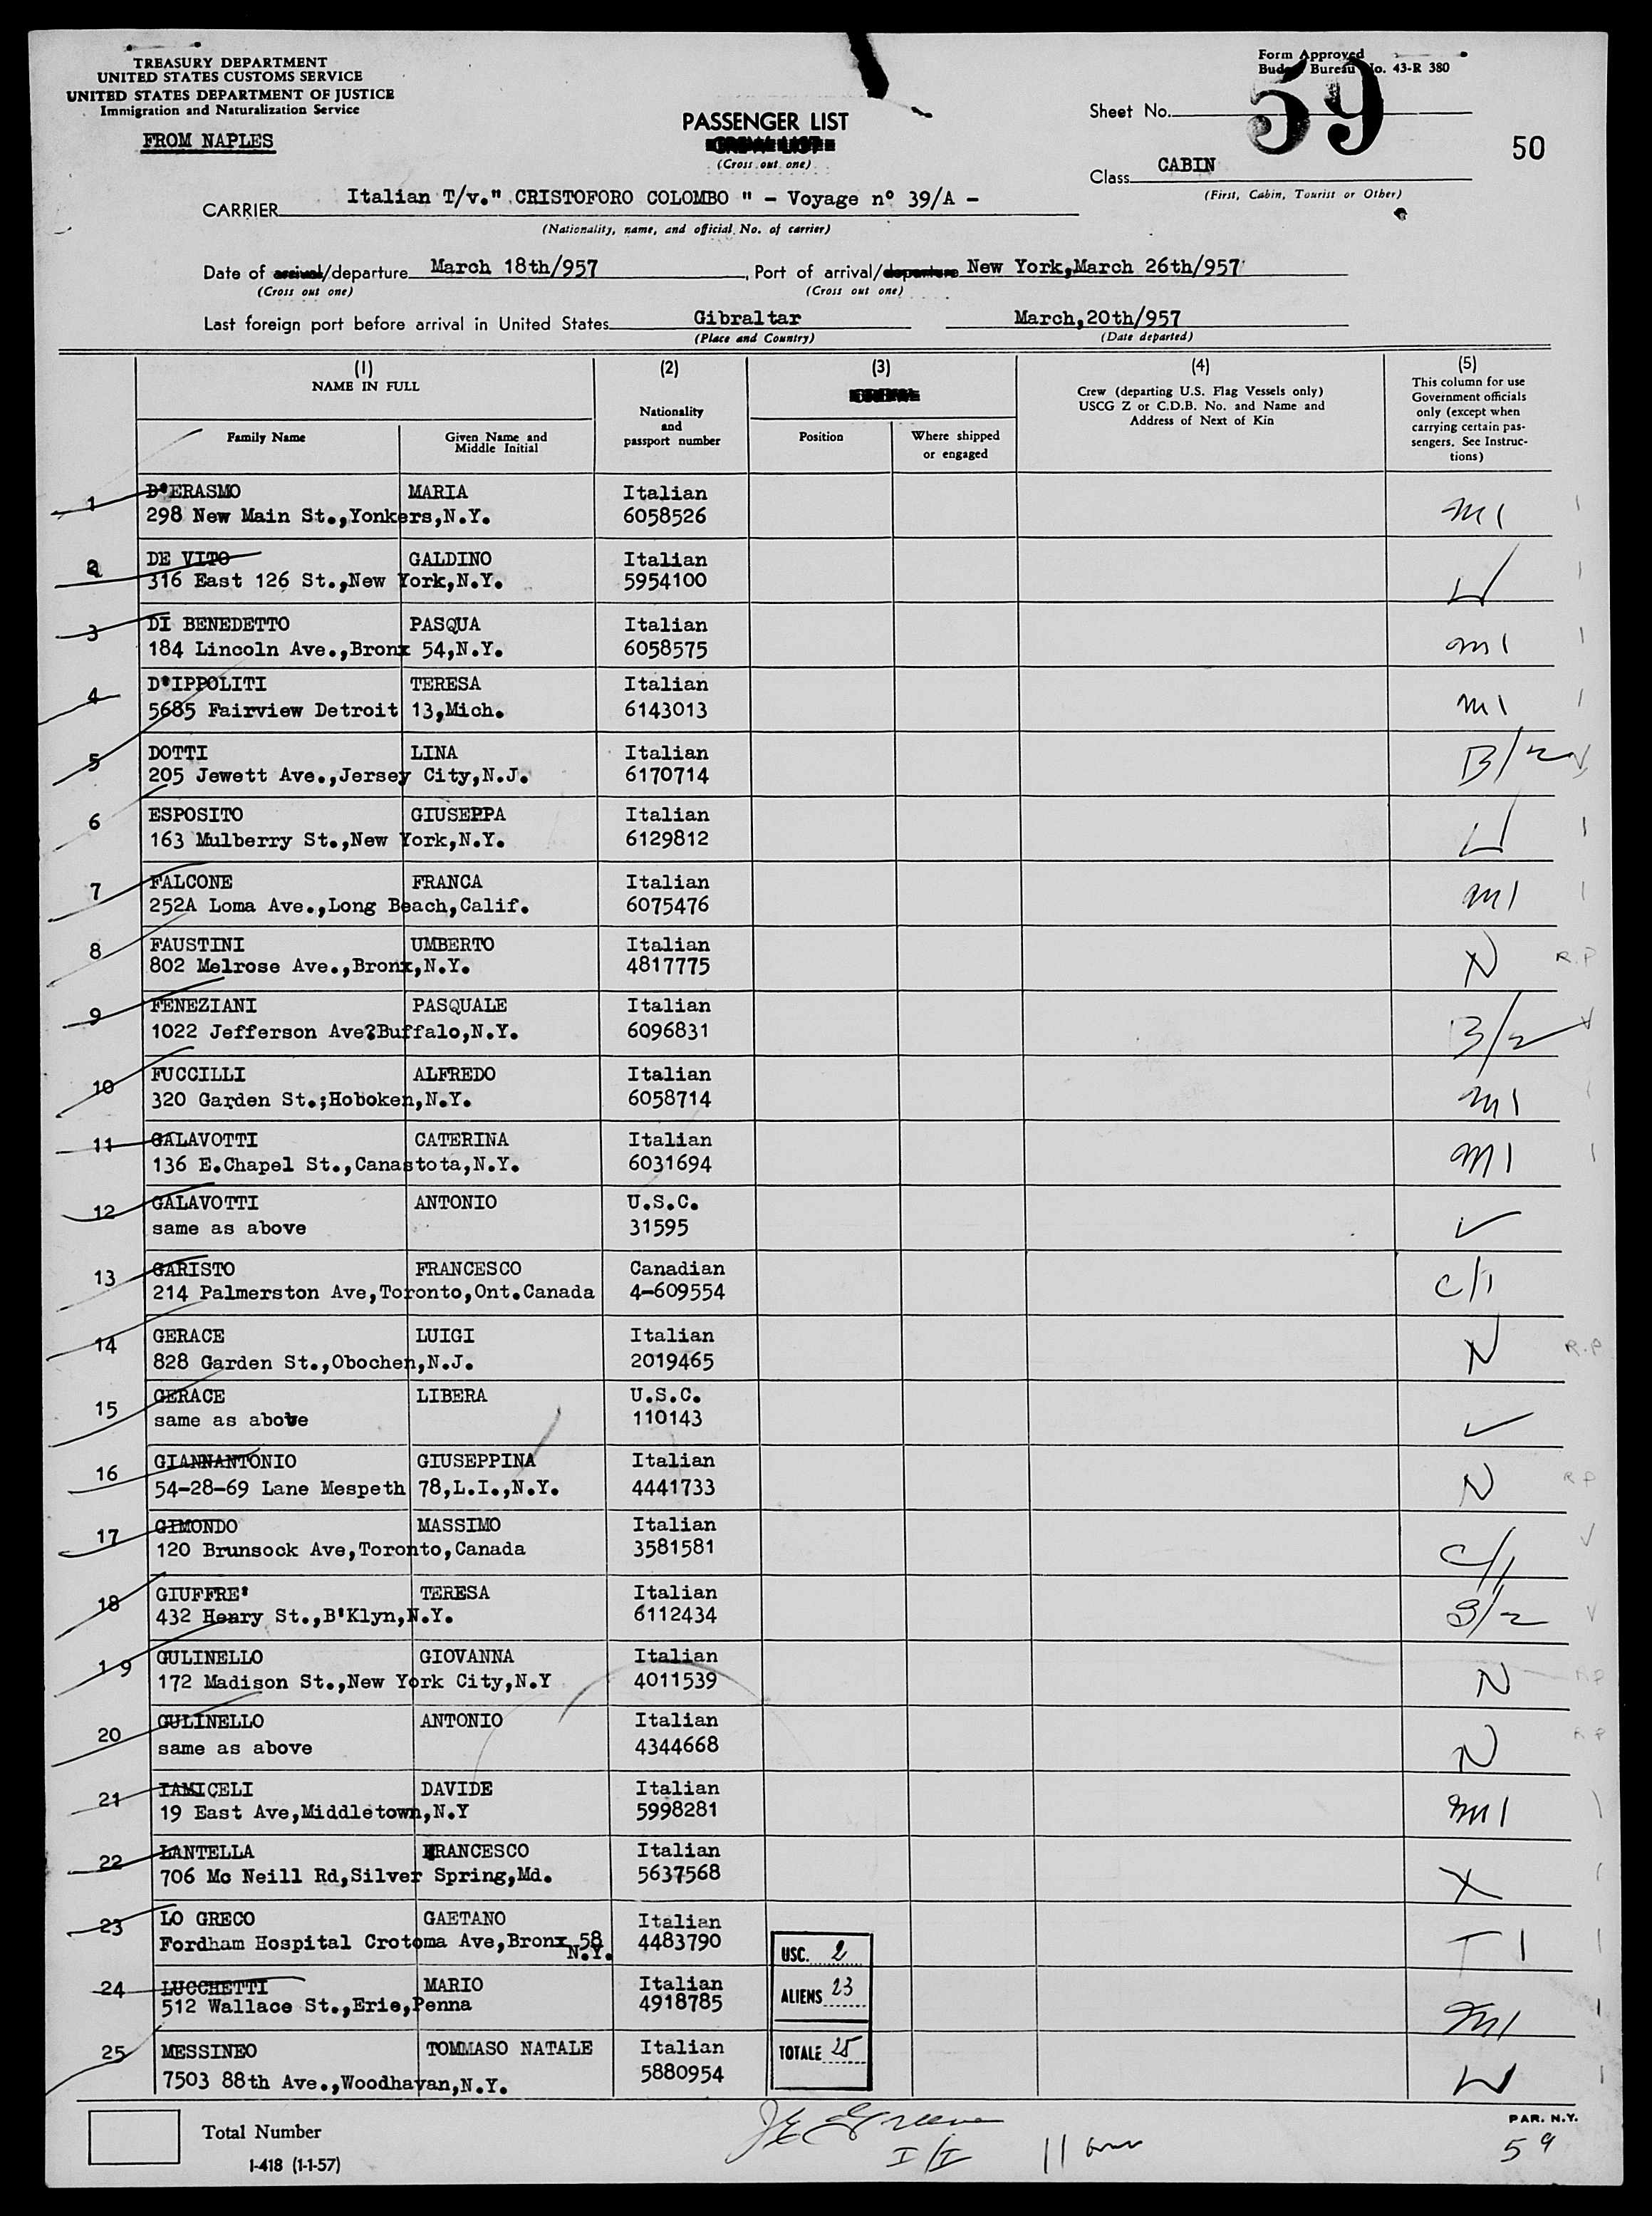 TREASURY DEPARTMENT
UNITED STATES CUSTOMS SERVICE
UNITED STATES DEPARTMENT OF JUSTICE
Immigration and Naturalization Service
FROM NAPLES
Form Approved
Budget Bureau No. 43-R 380
Sheet No. 59
50
PASSENGER LIST
CREW LIST
(Cross out one)
Class CABIN
(First, Cabin, Tourist or Other)
CARRIER Italian T/v." CRISTOFORO COLOMBO " - Voyage n° 39/A -
(Nationality, name, and official No. of carrier)
Date of arrival/departure March 18th/957, Port of arrival/departure New York,March 26th/957
(Cross out one) (Cross out one)
Last foreign port before arrival in United States Gibraltar March,20th/957
(Place and Country) (Date departed)
(1) (2) (3) (4) (5)
NAME IN FULL
Family Name
Given Name and
Middle Initial
Nationality
and
passport number
Position
Where shipped
or engaged
Crew (departing U.S. Flag Vessels only)
USCG Z or C.D.B. No. and Name and
Address of Next of Kin
This column for use
Government officials
only (except when
carrying certain pas-
sengers. See Instruc-
tions)
1 D'ERASMO MARIA Italian
298 New Main St.,Yonkers,N.Y. 6058526 M 1
2 DE VITO GALDINO Italian
316 East 126 St.,New York,N.Y. 5954100
3 DI BENEDETTO PASQUA Italian
184 Lincoln Ave.,Bronx 54,N.Y. 6058575 m 1
4 D'IPPOLITI TERESA Italian
5685 Fairview Detroit 13,Mich. 6143013 m 1
5 DOTTI LINA Italian
205 Jewett Ave.,Jersey City,N.J. 6170714 B/2
6 ESPOSITO GIUSEPPA Italian
163 Mulberry St.,New York,N.Y. 6129812
7 FALCONE FRANCA Italian
252A Loma Ave.,Long Beach,Calif. 6075476 M 1
8 FAUSTINI UMBERTO Italian
802 Melrose Ave.,Bronx,N.Y. 4817775 N R.P
9 FENEZIANI PASQUALE Italian
1022 Jefferson Ave?Buffalo,N.Y. 6096831 B/2
10 FUCCILLI ALFREDO Italian
320 Garden St.;Hoboken,N.Y. 6058714 m 1
11 GALAVOTTI CATERINA Italian
136 E.Chapel St.,Canastota,N.Y. 6031694 M 1
12 GALAVOTTI ANTONIO U.S.C.
same as above 31595 ✓
13 GARISTO FRANCESCO Canadian
214 Palmerston Ave,Toronto,Ont.Canada 4-609554 C/1
14 GERACE LUIGI Italian
828 Garden St.,Obochen,N.J. 2019465 N R.P
15 GERACE LIBERA U.S.C.
same as above 110143 ✓
16 GIANNANTONIO GIUSEPPINA Italian
54-28-69 Lane Mespeth 78,L.I.,N.Y. 4441733 N R P
17 GIMONDO MASSIMO Italian
120 Brunsock Ave,Toronto,Canada 3581581 C/1
18 GIUFFRE' TERESA Italian
432 Henry St.,B'Klyn,N.Y. 6112434 B/2
19 GULINELLO GIOVANNA Italian
172 Madison St.,New York City,N.Y 4011539 N R P
20 GULINELLO ANTONIO Italian
same as above 4344668 N R P
21 IAMICELI DAVIDE Italian
19 East Ave,Middletown,N.Y 5998281 M 1
22 LANTELLA FRANCESCO Italian
706 Mc Neill Rd,Silver Spring,Md. 5637568 X
23 LO GRECO GAETANO Italian
Fordham Hospital Crotoma Ave,Bronx 58 N.Y. 4483790 T 1
24 LUCCHETTI MARIO Italian
512 Wallace St.,Erie,Penna 4918785 M 1
25 MESSINEO TOMMASO NATALE Italian
7503 88th Ave.,Woodhavan,N.Y. 5880954
USC. 2
ALIENS 23
TOTALE 25
Total Number
I-418 (1-1-57)
I/I
PAR. N.Y.
59